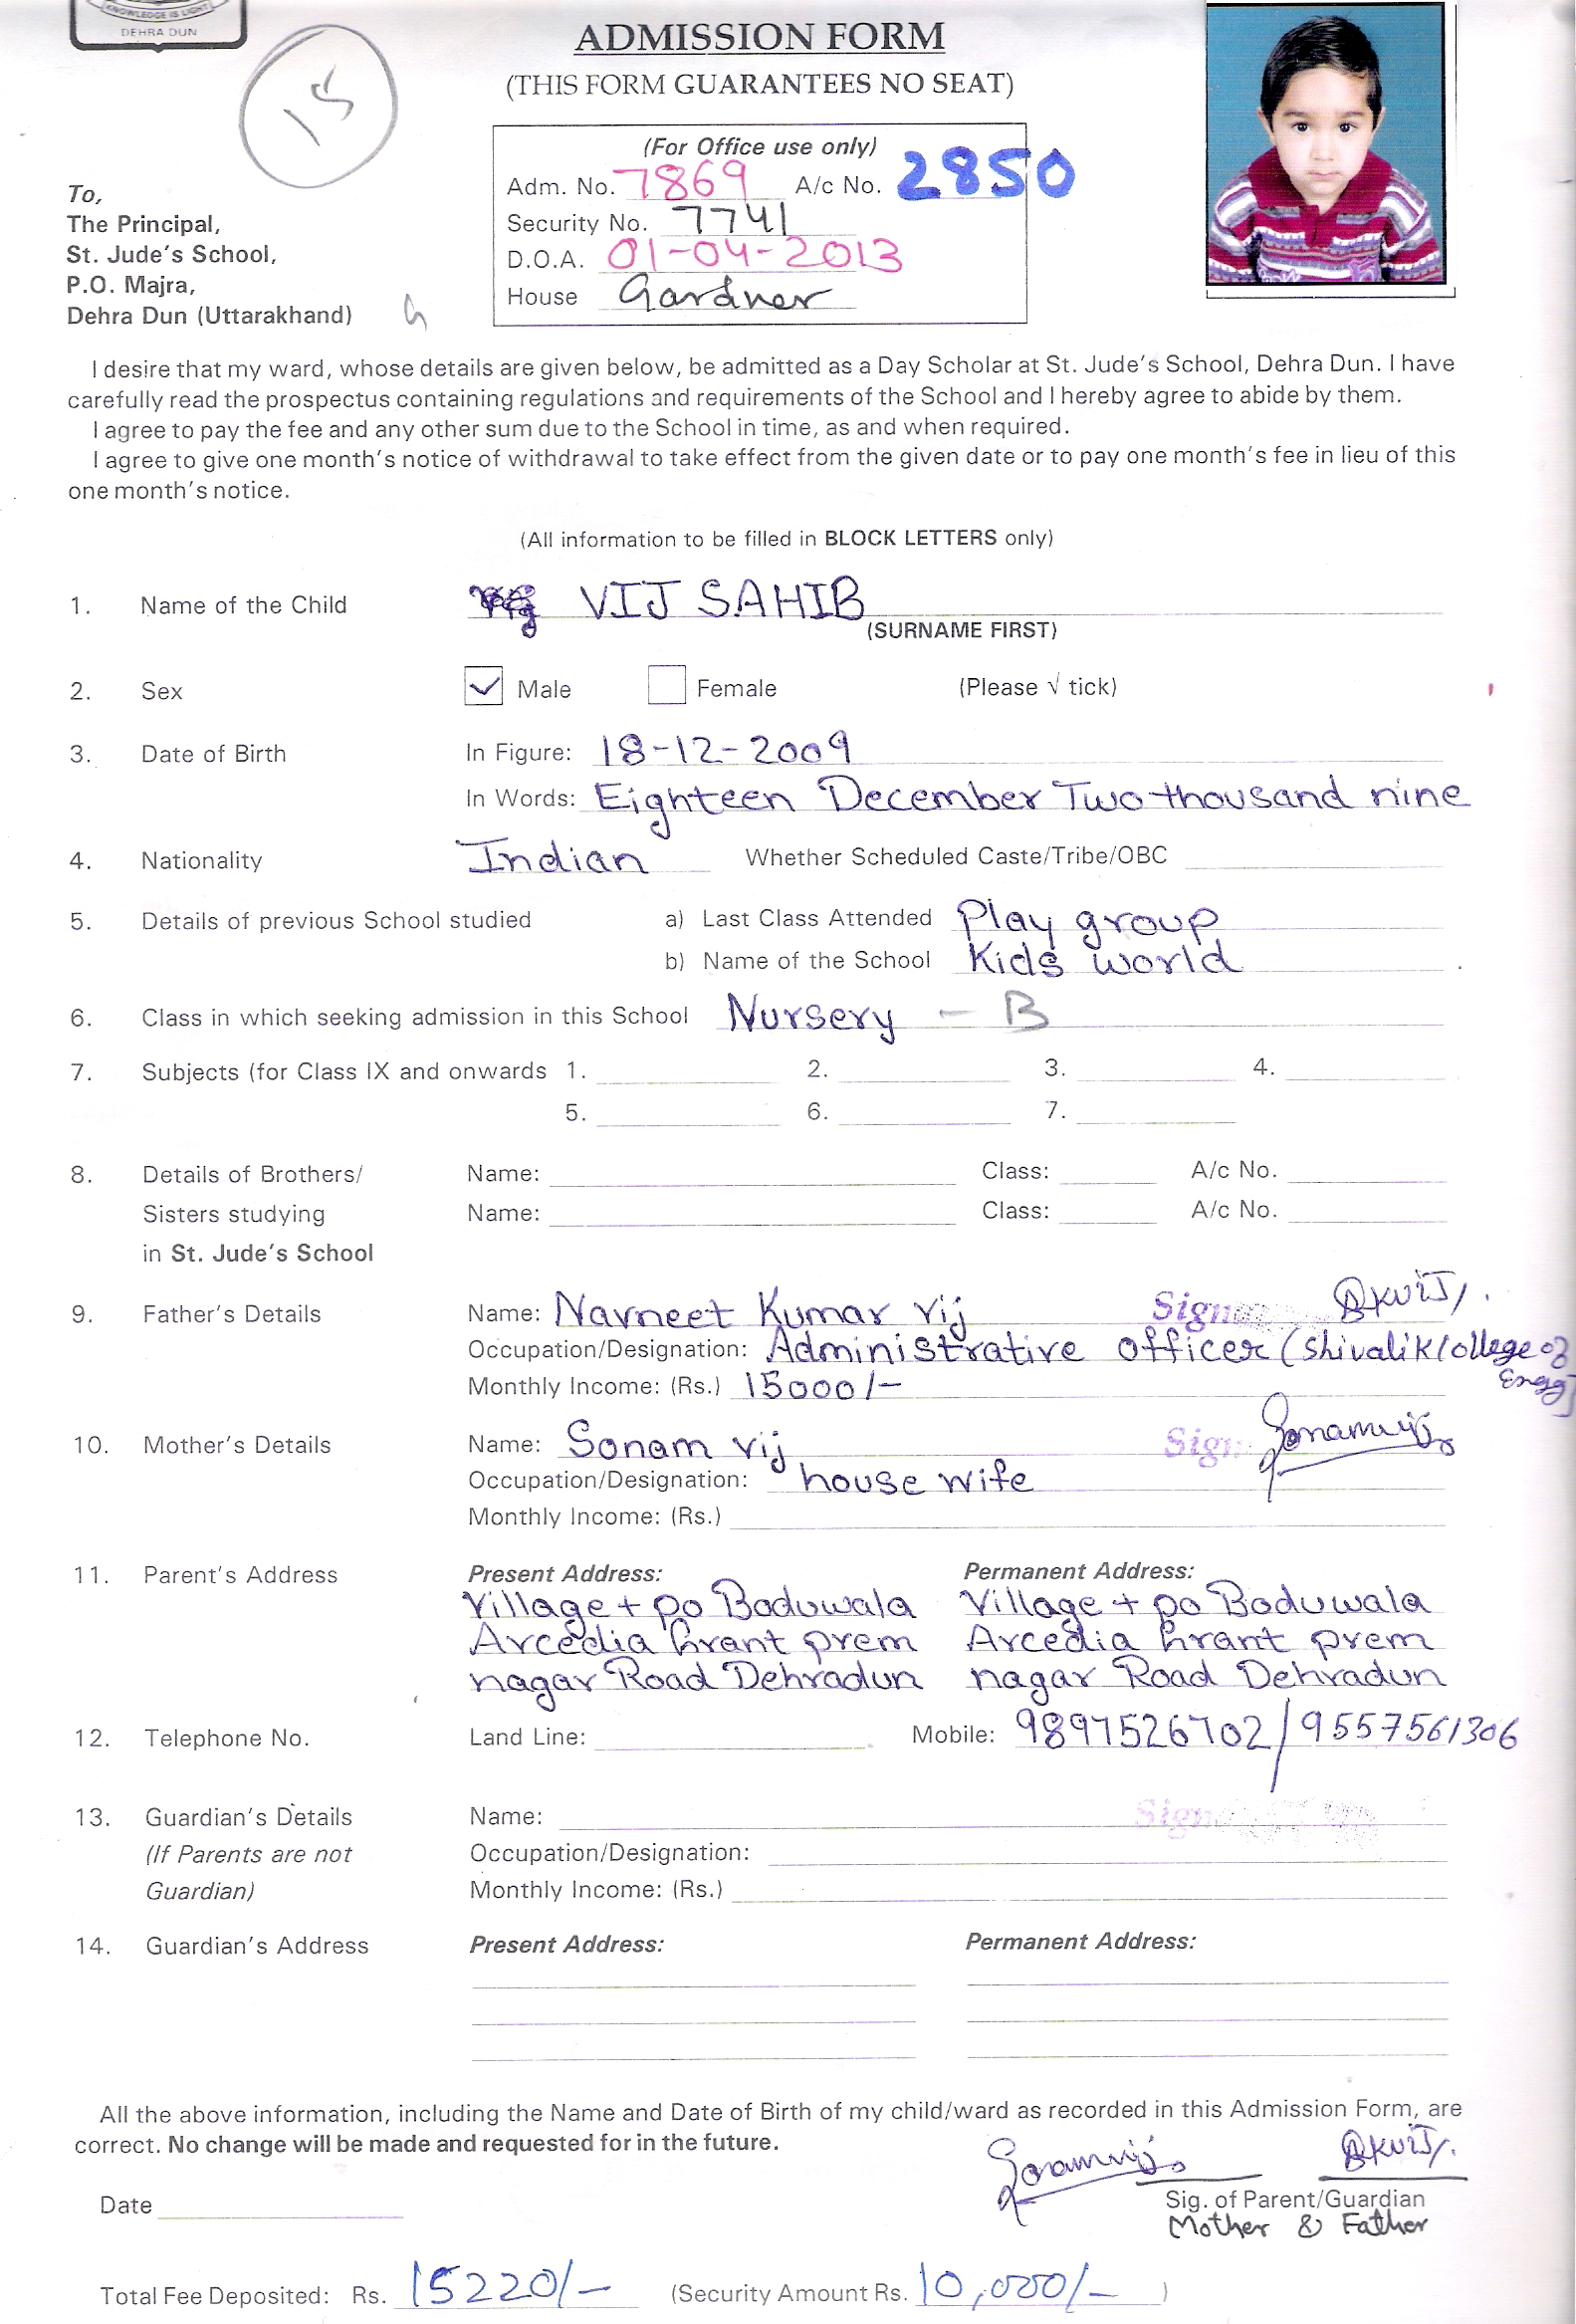 KNOWLEDGE IS LIGHT
DEHRA DUN
15
ADMISSION FORM
(THIS FORM GUARANTEES NO SEAT)
(For Office use only)
Adm. No. 7869 A/c No. 2850
Security No. 7741
D.O.A. 01-04-2013
House Gardner
To,
The Principal,
St. Jude's School,
P.O. Majra,
Dehra Dun (Uttarakhand)
I desire that my ward, whose details are given below, be admitted as a Day Scholar at St. Jude's School, Dehra Dun. I have
carefully read the prospectus containing regulations and requirements of the School and I hereby agree to abide by them.
I agree to pay the fee and any other sum due to the School in time, as and when required.
I agree to give one month's notice of withdrawal to take effect from the given date or to pay one month's fee in lieu of this
one month's notice.
(All information to be filled in BLOCK LETTERS only)
1. Name of the Child VIJ SAHIB
(SURNAME FIRST)
2. Sex Male Female (Please √ tick)
3. Date of Birth In Figure: 18-12-2009
In Words: Eighteen December Two thousand nine
4. Nationality Indian Whether Scheduled Caste/Tribe/OBC
5. Details of previous School studied a) Last Class Attended Play group
b) Name of the School Kids world
6. Class in which seeking admission in this School Nursery - B
7. Subjects (for Class IX and onwards 1. 2. 3. 4.
5. 6. 7.
8. Details of Brothers/ Name: Class: A/c No.
Sisters studying Name: Class: A/c No.
in St. Jude's School
9. Father's Details Name: Navneet Kumar Vij Sign
Occupation/Designation: Administrative officer (Shivalik College of
Engg)
Monthly Income: (Rs.) 15000/-
10. Mother's Details Name: Sonam Vij Sign Sonamvij
Occupation/Designation: house wife
Monthly Income: (Rs.)
11. Parent's Address Present Address: Permanent Address:
Village + po Baduwala Village + po Baduwala
Arcedia Grant prem Arcedia Grant prem
nagar Road Dehradun nagar Road Dehradun
12. Telephone No. Land Line: Mobile: 9897526702/9557561306
13. Guardian's Details Name: Sign
(If Parents are not Occupation/Designation:
Guardian) Monthly Income: (Rs.)
14. Guardian's Address Present Address: Permanent Address:
All the above information, including the Name and Date of Birth of my child/ward as recorded in this Admission Form, are
correct. No change will be made and requested for in the future.
Sonamvij
Date Sig. of Parent/Guardian
Mother & Father
Total Fee Deposited: Rs. 15220/- (Security Amount Rs. 10,000/- )